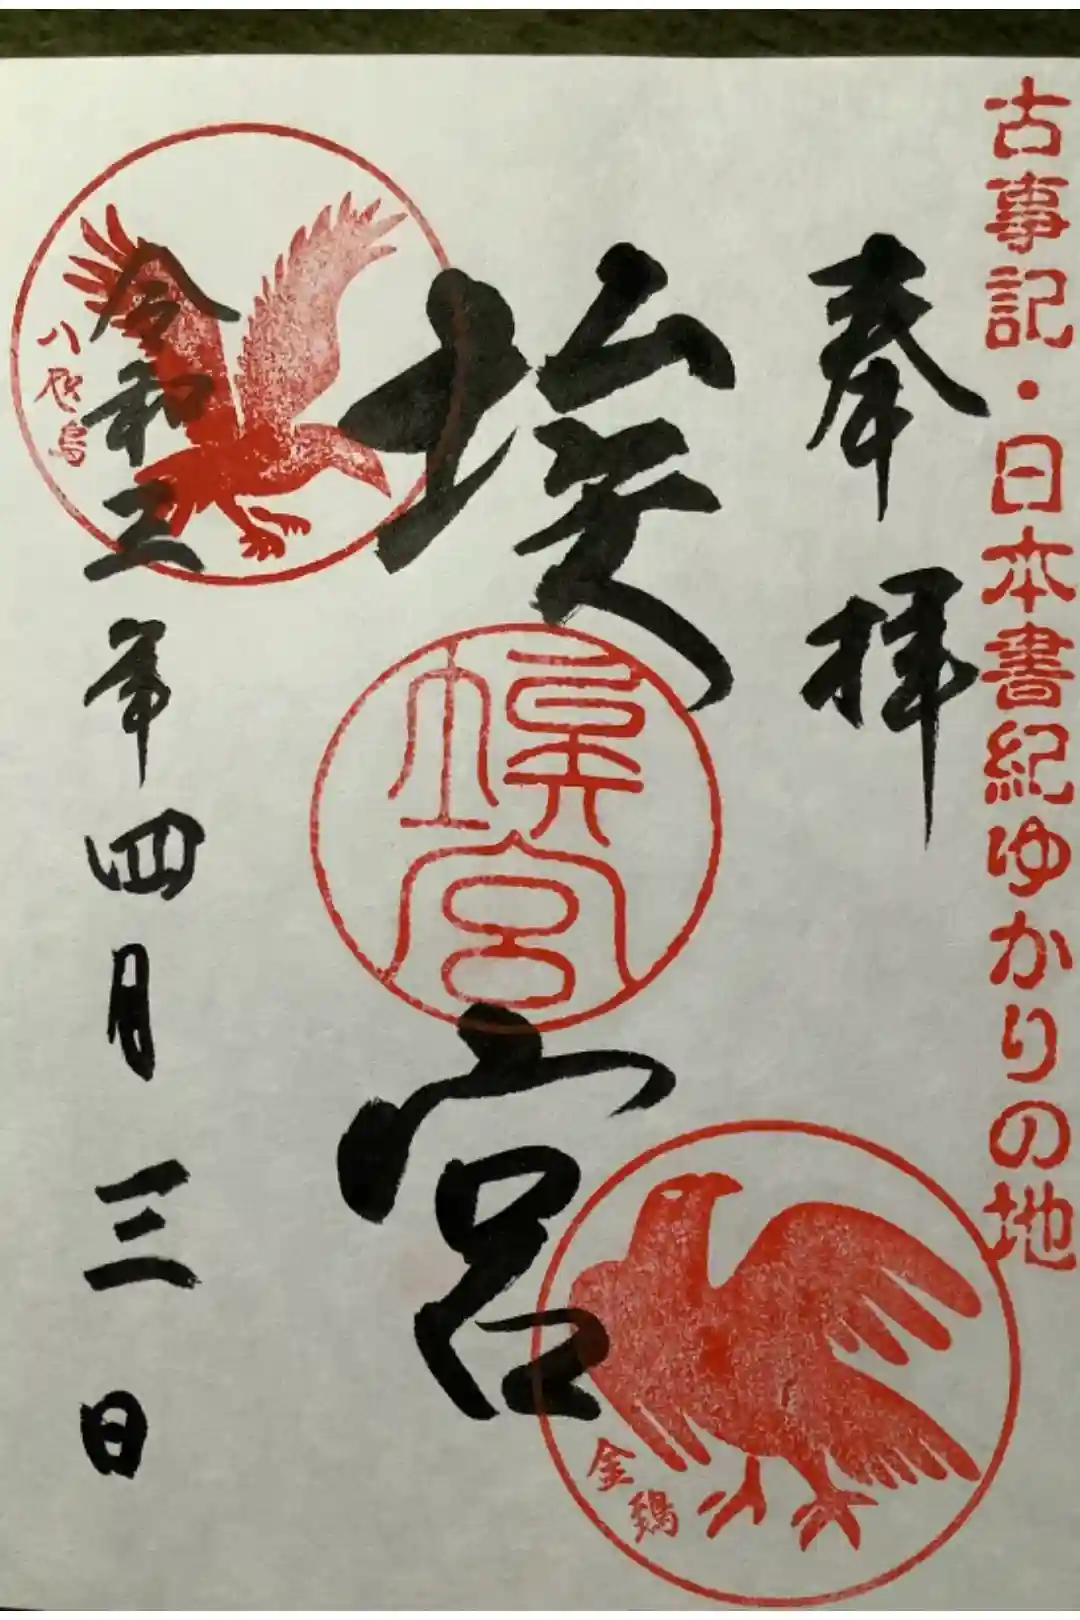 古事記・日本書紀ゆかりの地
奉拝
埃宮
埃宮
金鵄
令和三年四月三日
八咫烏